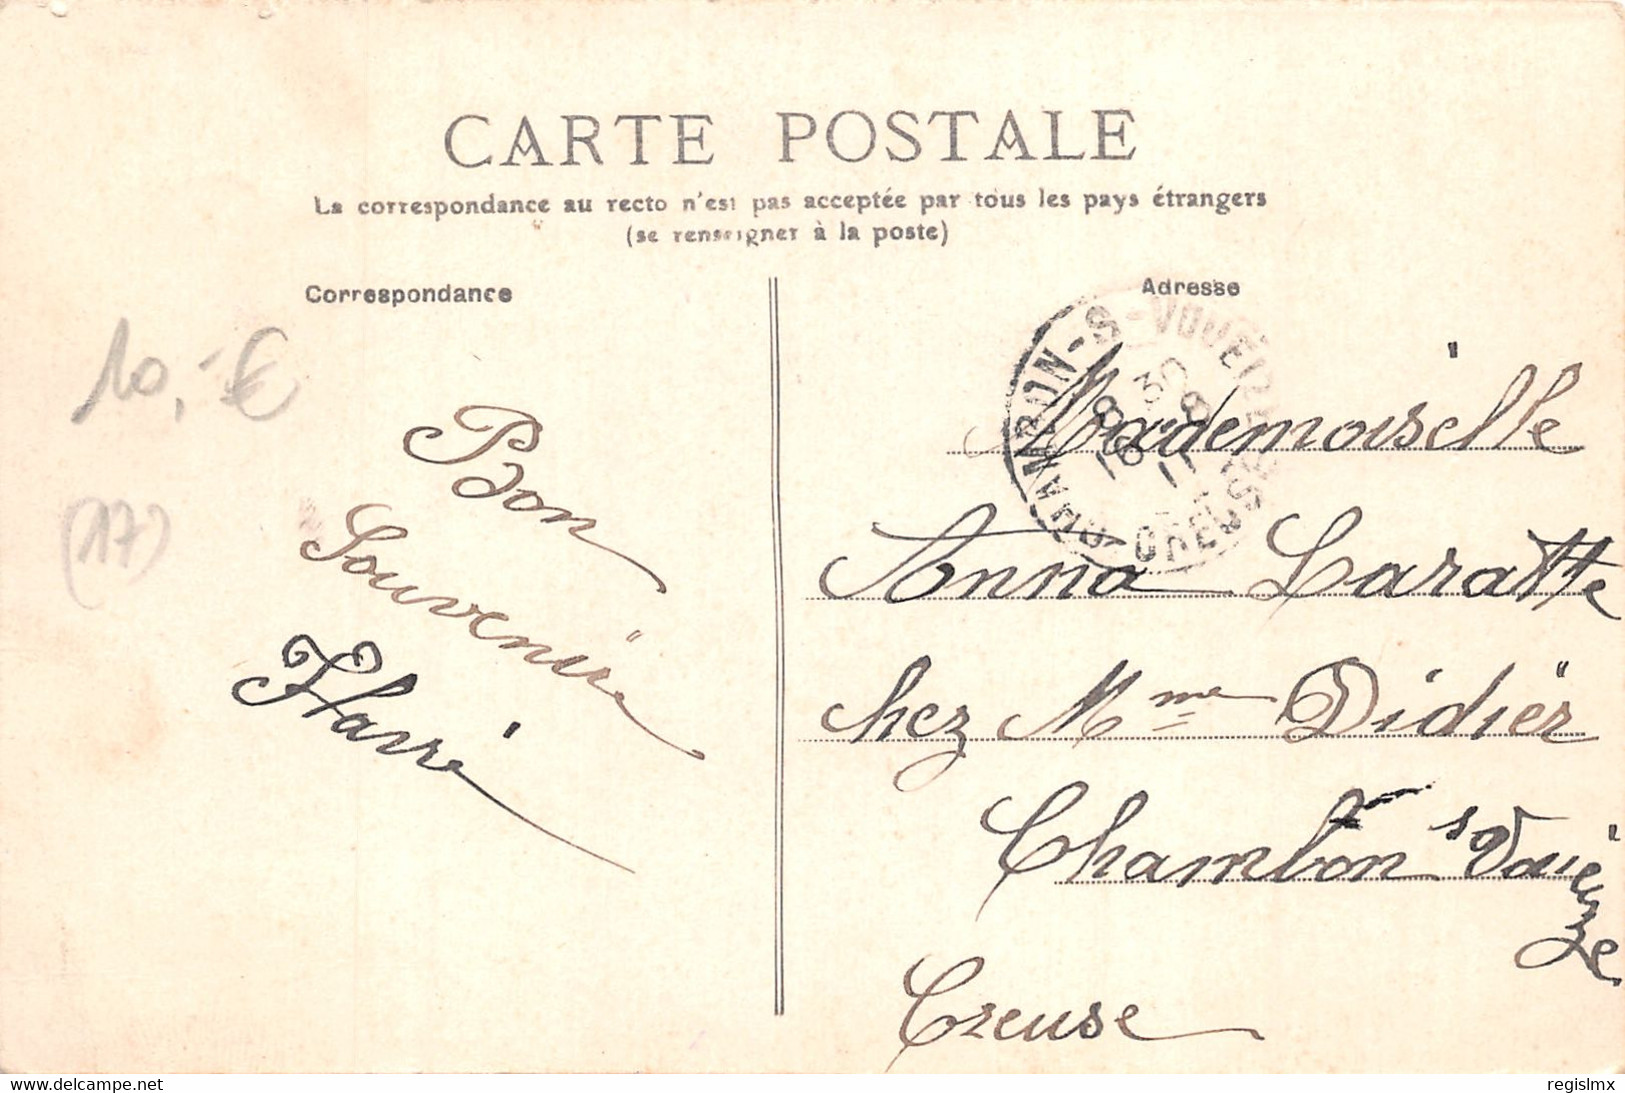 CARTE POSTALE
La correspondance au recto n'est pas acceptée par tous les pays étrangers
(se renseigner à la poste)
Correspondance
Adresse
10,-€
(17)
Bon
Souvenire
CHAMBON-S-VOUEIZE
30
8
11
CREUSE
Mademoiselle
Anna Laratte
chez Mme Didier
Chambon s Vouéize
Creuse
delcampe.net
regislmx